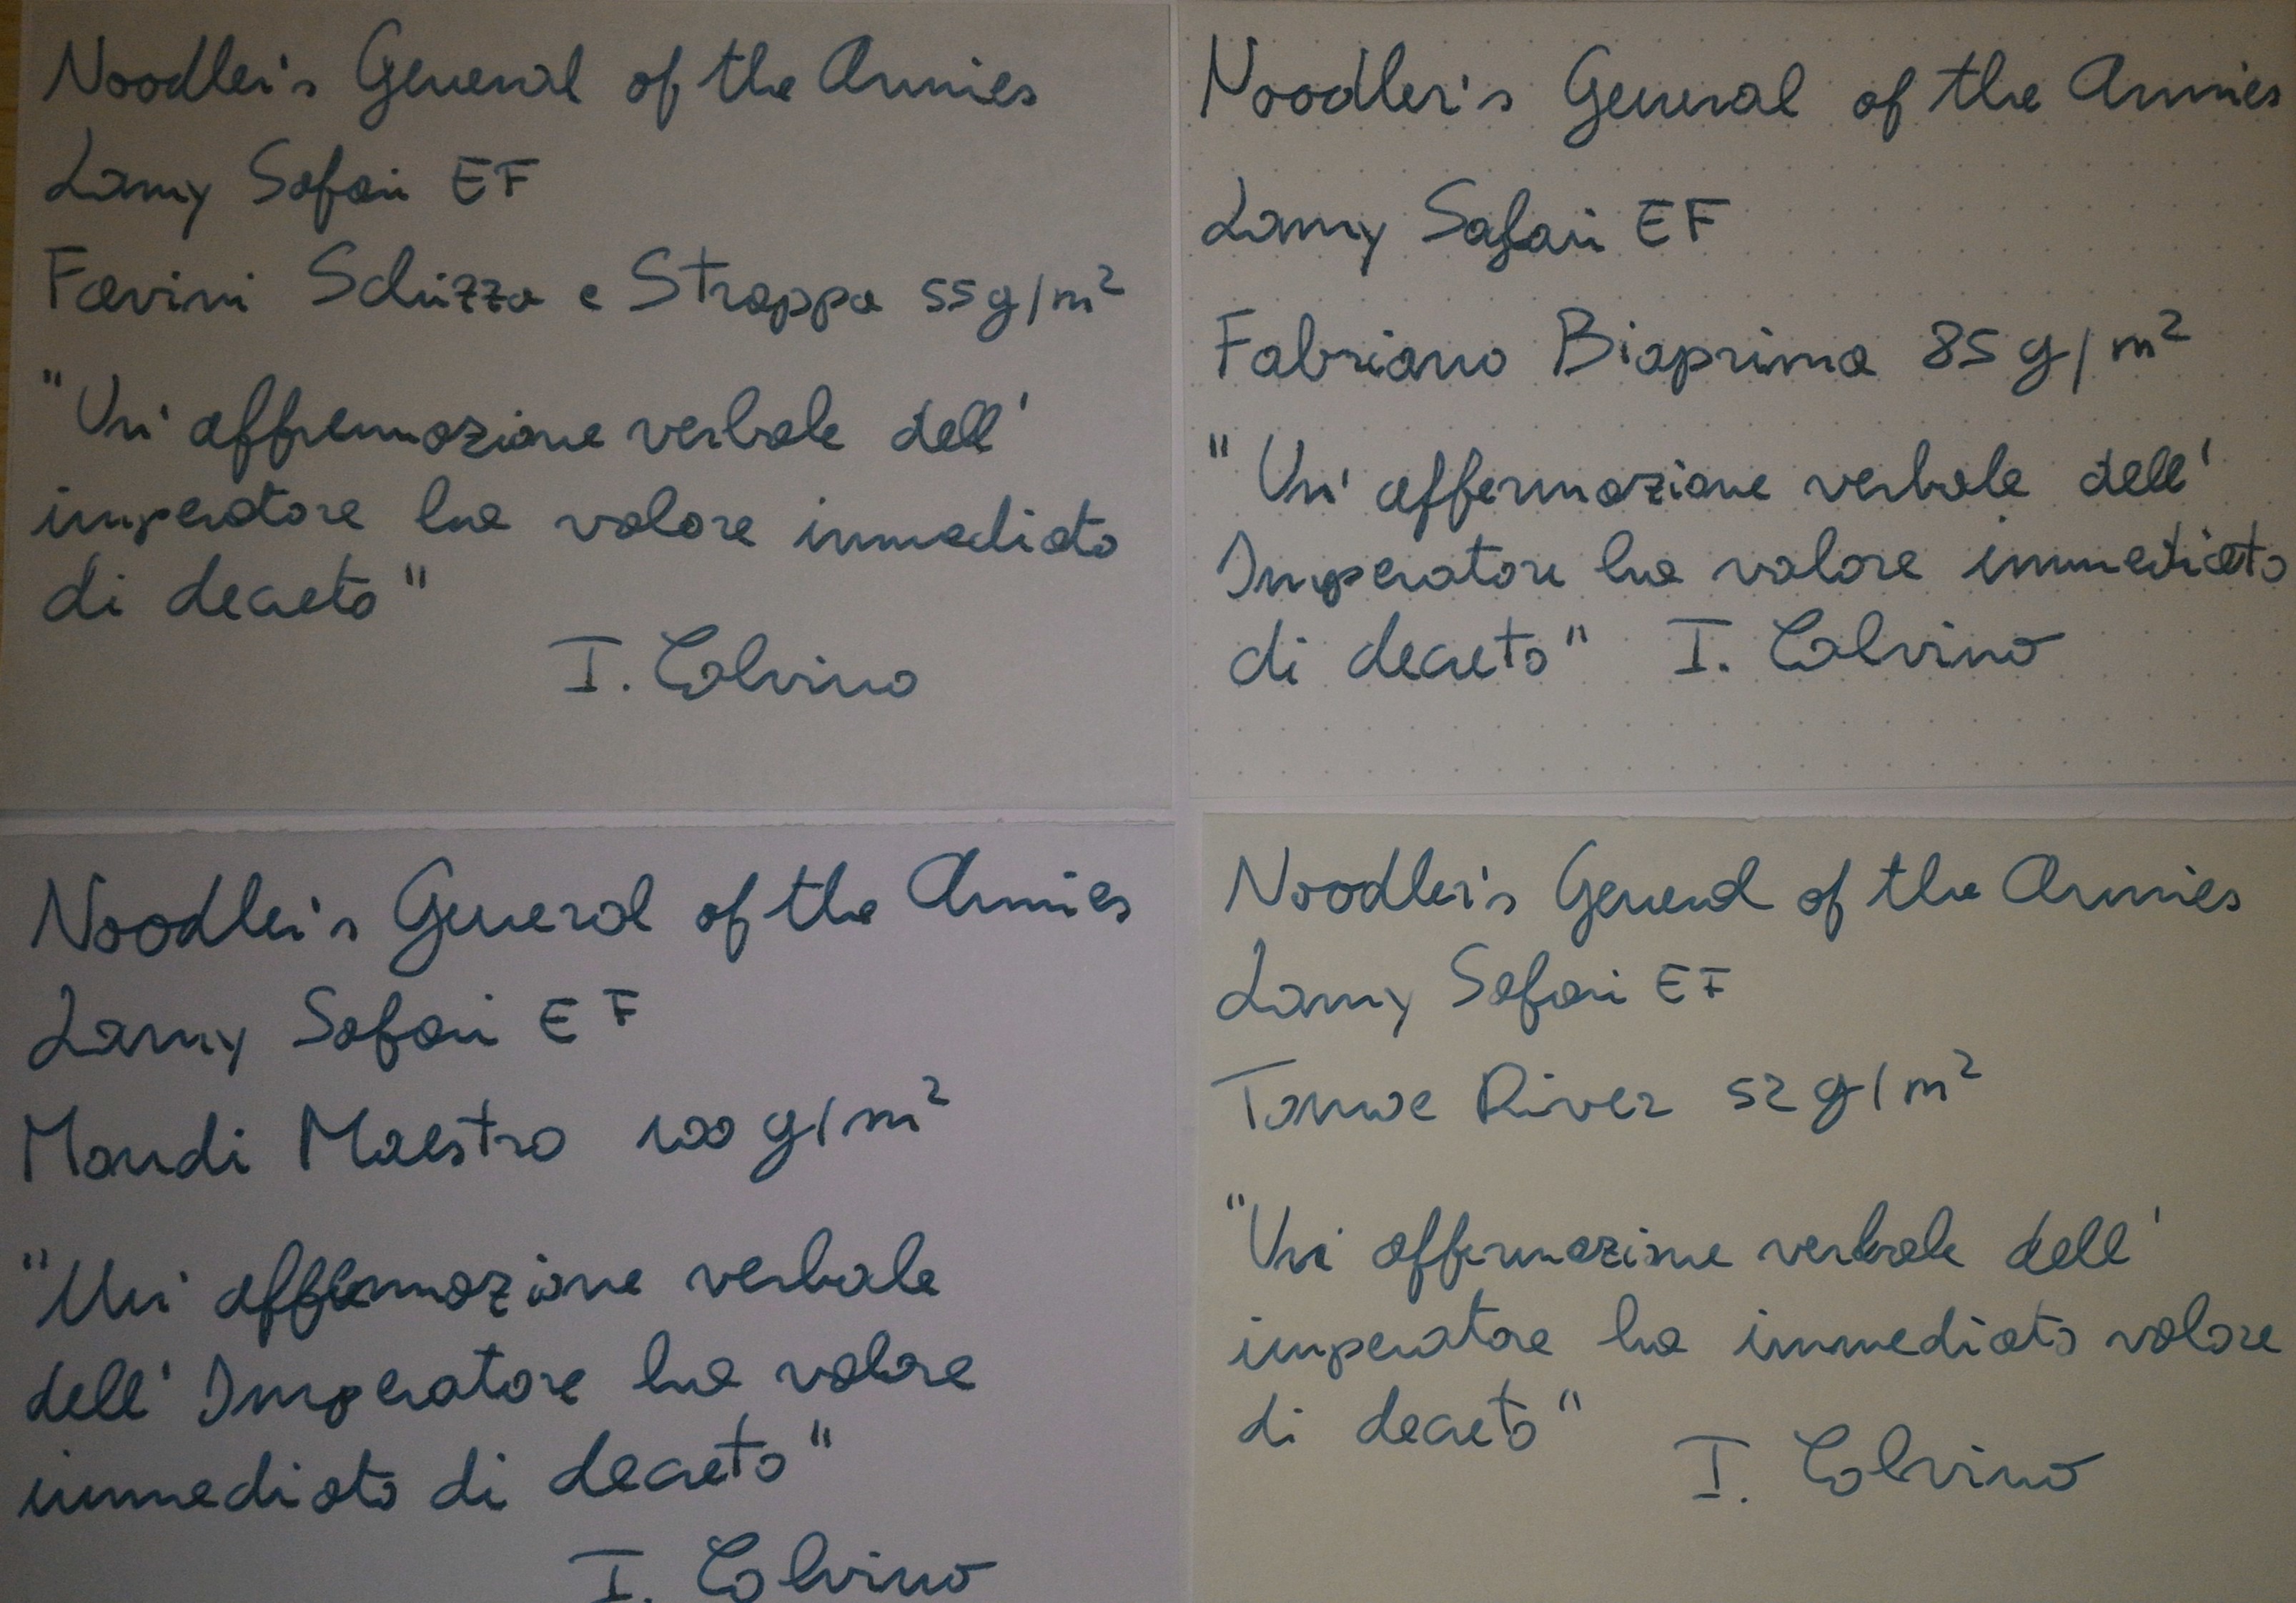 Noodler's General of the Armies
Lamy Safari EF
Favini Schizza e Strappa 55g/m²
"Un' affermazione verbale dell'
imperatore ha valore immediato
di decreto"
I. Calvino
Noodler's General of the Armies
Lamy Safari EF
Fabriano Bioprima 85g/m²
"Un' affermazione verbale dell'
Imperatore ha valore immediato
di decreto" I. Calvino
Noodler's General of the Armies
Lamy Safari EF
Mondi Maestro 100g/m²
"Un' affermazione verbale
dell' Imperatore ha valore
immediato di decreto"
I. Calvino
Noodler's General of the Armies
Lamy Safari EF
Tomoe River 52g/m²
"Un' affermazione verbale dell'
imperatore ha immediato valore
di decreto"
I. Calvino